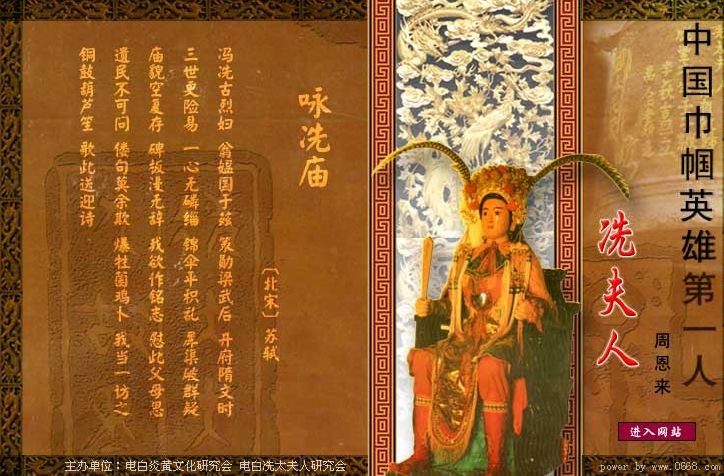 中国巾帼英雄第一人
冼夫人
周恩来
进入网站
power by www.0668.com
咏冼庙
〔北宋〕苏轼
冯冼古烈妇 翁媪国于兹 策勋梁武后 开府隋文时
三世更险易 一心无磷缁 锦伞平积乱 犀渠破群疑
庙貌空复存 碑板漫无辞 我欲作铭志 慰此父母思
遗民不可问 偻句莫余欺 爆牲菌鸡卜 我当一访之
铜鼓葫芦笙 歌此送迎诗
主办单位：电白炎黄文化研究会 电白冼太夫人研究会